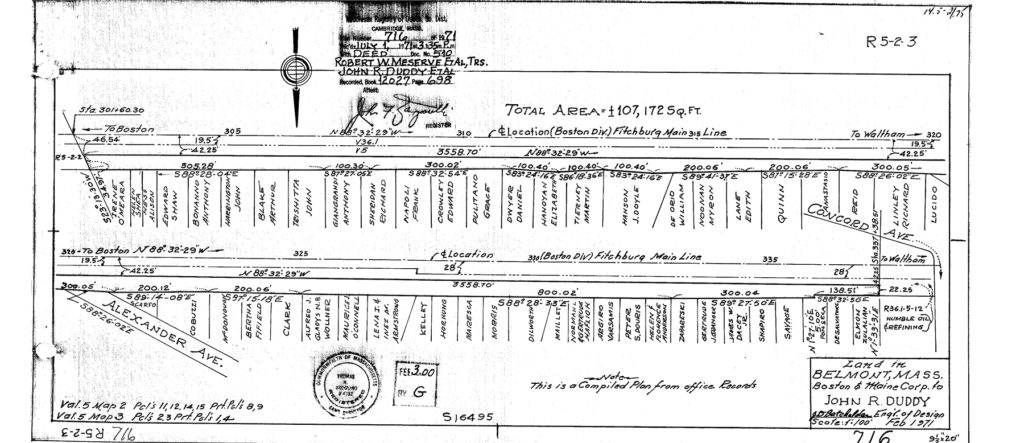 14.5-2/75
R 5-2-3
Middlesex Registry of Deeds, So. Dist.
CAMBRIDGE, MASS.
Plan Number 716 of 1971
Rec'd JULY 1, 1971 at 3:35 P.M
With DEED Doc. No. 510
ROBERT W. MESERVE ETAL, TRS.
JOHN R. DUDDY ETAL
Recorded, Book 12027 Page 698
Attest:
REGISTER
TOTAL AREA = ±107,172 SQ. FT.
Sta 301+60.30
To Boston
305
N 88°-32'-29"W
310
Location (Boston Div.) Fitchburg Main 315 Line
To Waltham
320
46.54
19.5
42.25
V36.1
V5
3558.70'
N 88°-32'-29"W
19.5
42.25
R5-2-2
505.28
100.30
300.02'
100.40
100.40
100.40
200.06'
200.06'
300.05'
S88°-28'-04"E
S87°-27'-05"E
S88°-32'-54"E
S83°-24'-16"E
S86°-18'-36"E
S83°-24'-16"E
S89°-41'-37"E
S87°-15'-28"E
S88°-26'-02"E
IRENE O'MEARA
EDWARD SHAW
BOHANNO ANTHONY
HARRINGTON JOHN
BLAKE ARTHUR
TRISHITTA JOHN
GIANGRANDE ANTHONY
SHERIDAN RICHARD
NAPOLI FRANK
CROWLEY EDWARD
PULITANO GRACE
DWYER DANIEL
HANOYAN ELIZABETH
TIERNEY MARTIN
MANSON J. DOYLE
DE ORIO WILLIAM
NOONAN MYRON
LANE EDITH
QUINN
ANASTASIO
REID
LINLEY RICHARD
LUCIDO
CONCORD AVE
320 - To Boston N 88°-32'-29"W
325
Location
330 (Boston Div.) Fitchburg Main Line
335
Sta 337+38.51
To Waltham
19.5
42.25
N 88°-32'-29"W
28'
28'
42.25
3558.70'
300.05'
200.12'
200.06'
800.02'
300.04
138.51
22.25
S88°-26'-02"E
S89°-14'-08"E
S87°-15'-18"E
S88°-28'-33"E
S89°-27'-50"E
S88°-32'-50"E
ALEXANDER AVE.
SCARFO
COBUZZI
McDONOUGH
BERTHA FIFIELD
CLARK
ALFRED J. GLADYS N.R. WOLLNER
MAURICE J. CONNELL
LENA I. & INES M. ARMSTRONG
KELLEY
HORRIGAN
MAIRESSA
MORRIS
DILWORTH
MILLETT
RIBEIRO VARSAMIS
PETER S. DOURIS
ZAGAROFSKI
GERTRUDE
JAMES W. DACEY JR.
SHAPIRO
SAVAGE
DESALVATORE
N 1°-33'-31"E
R36.1-5-12
HUMBLE OIL & REFINING
COMMONWEALTH OF MASSACHUSETTS
REGISTERED
LAND SURVEYOR
FEE 3.00
BY G
Note
This is a Compiled Plan from office Records
Val. 5 Map 2 Pcl's 11, 12, 14, 15 Prt. Pcl's 8, 9
Val. 5 Map 3 Pcl's 2,3 Prt. Pcl's 1, 4
S16495
Land in
BELMONT, MASS.
Boston & Maine Corp. to
JOHN R. DUDDY
J.D. Batchelder Eng'r. of Design
Scale: 1"=100' Feb 1971
R5-2-3
716
716
9½×20"